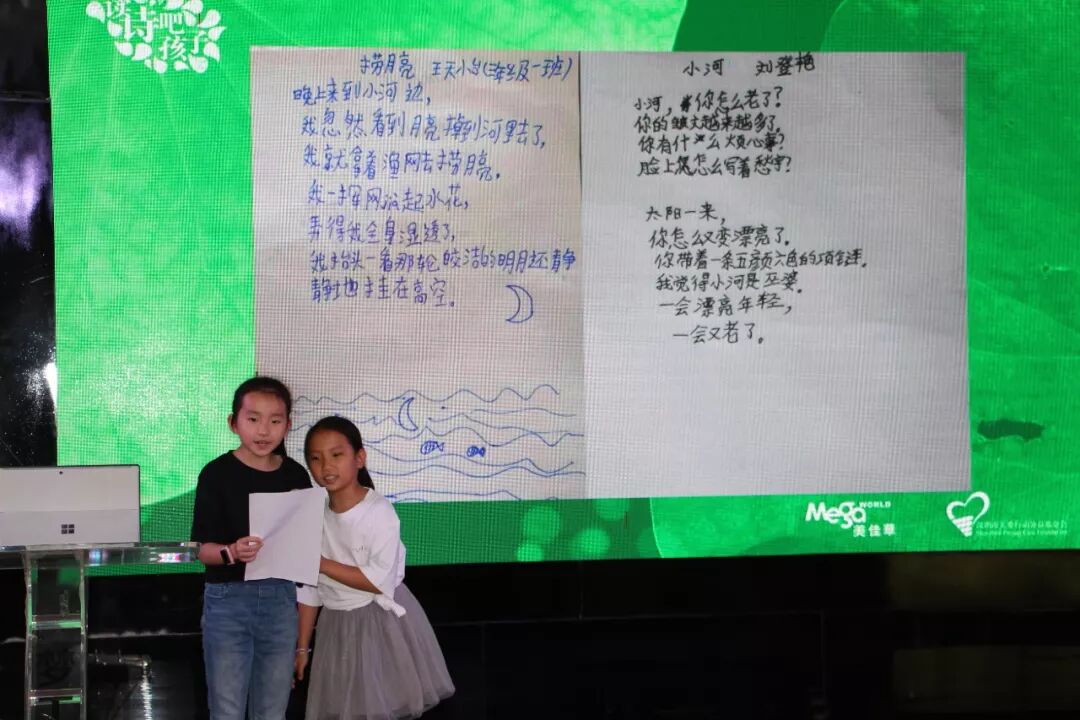 读诗吧孩子
捞月亮 王天小(三年级一班)
晚上来到小河边,
我忽然看到月亮掉到河里去了,
我就拿着渔网去捞月亮。
我一挥网溅起水花,
弄得我全身湿透了,
我抬头一看那轮皎洁的明月还静
静地挂在高空。
小河 刘登艳
小河,你怎么老了?
你的皱文越来越多了。
你有什么烦心事?
脸上怎么写着愁字?
太阳一来,
你怎么又变漂亮了。
你带着一条五颜六色的项链。
我觉得小河是巫婆。
一会漂亮年轻,
一会又老了。
Mega WORLD
美佳華